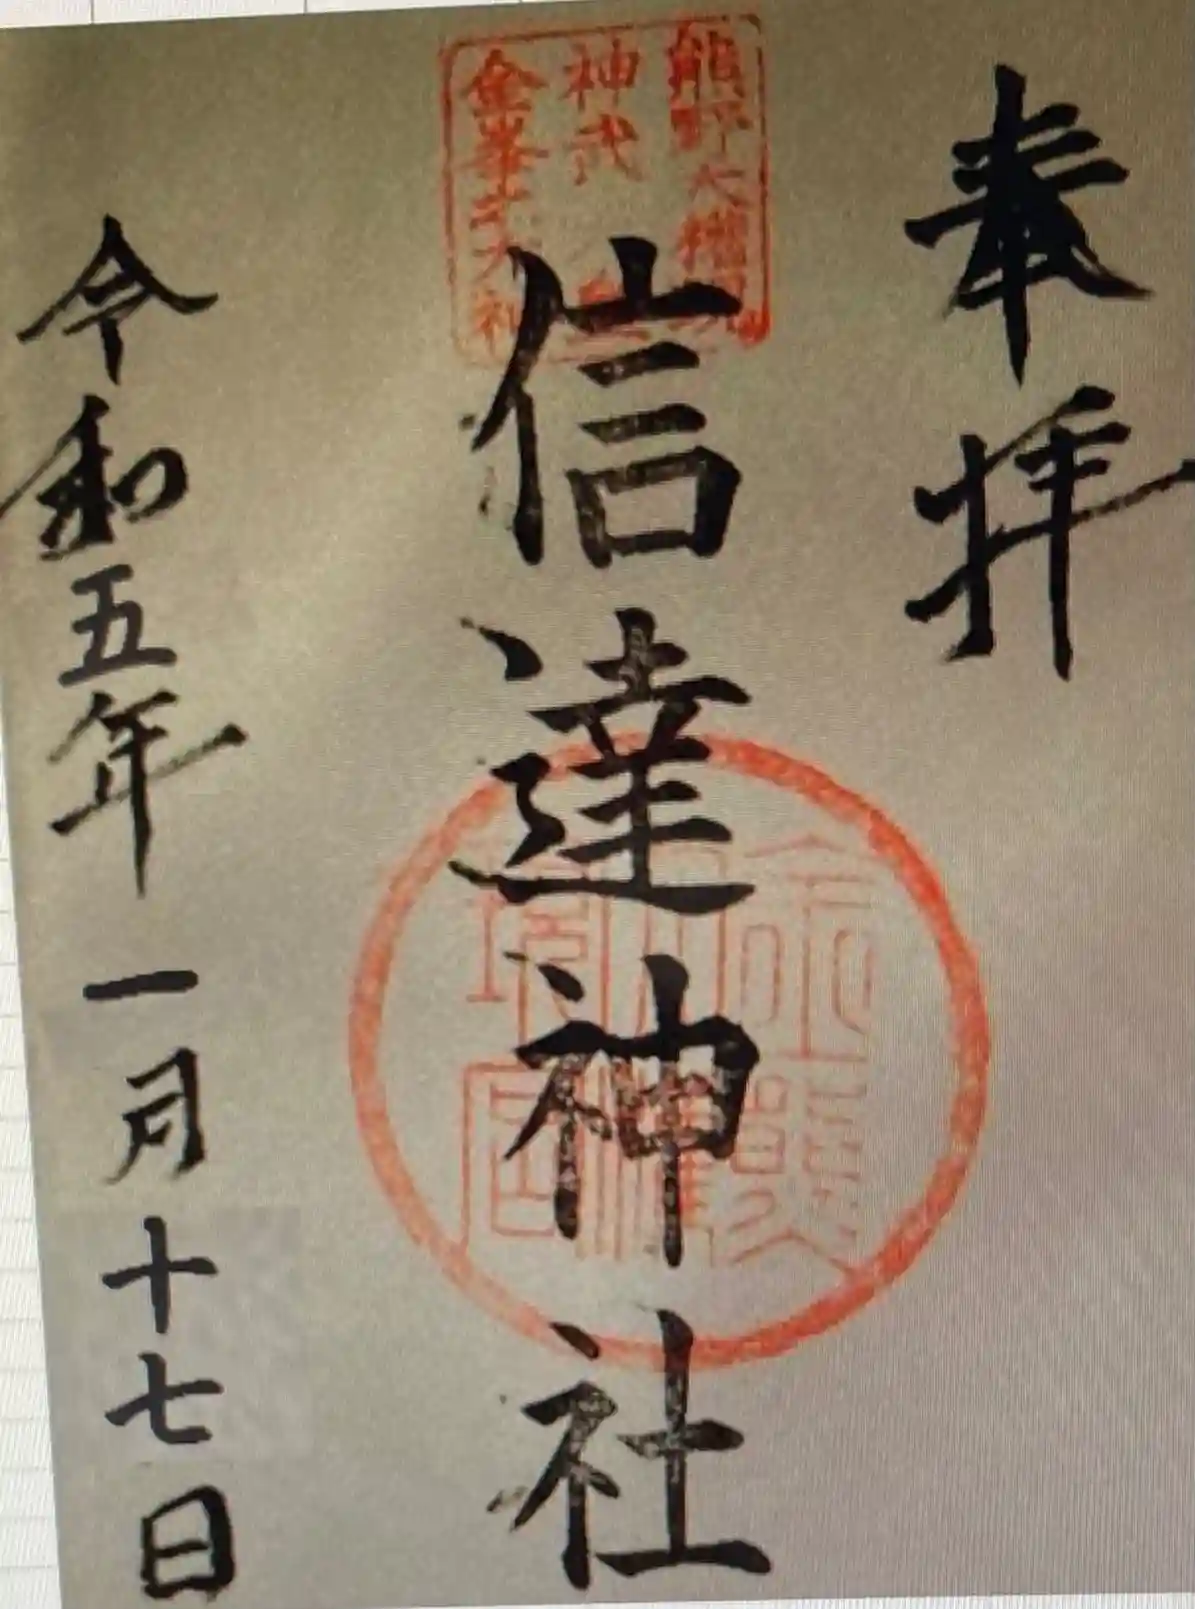 奉拝
熊野大権現
神武
金峯
信達神社
令和五年一月十七日